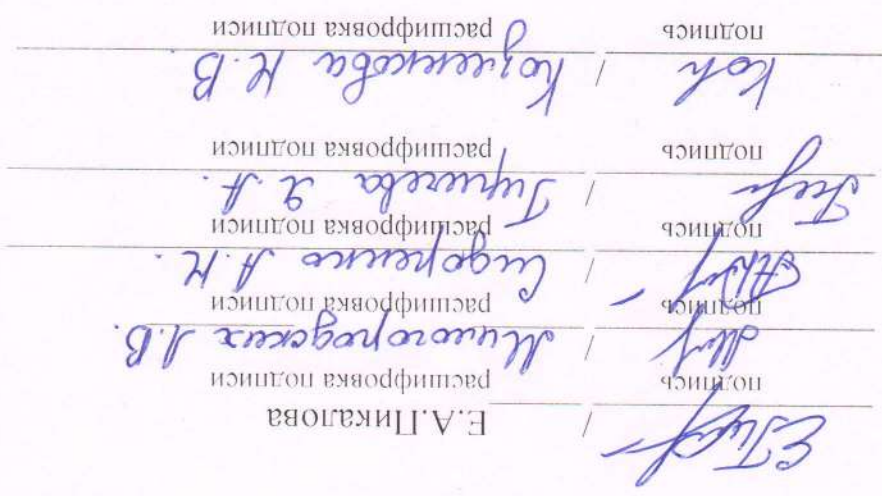 / Е.А.Пикалова
подпись расшифровка подписи
/ Миногородских Л.В.
подпись расшифровка подписи
/ Сидоренко А.Н.
подпись расшифровка подписи
/ Гиричева Я.А.
подпись расшифровка подписи
/ Коженкова Н.В.
подпись расшифровка подписи